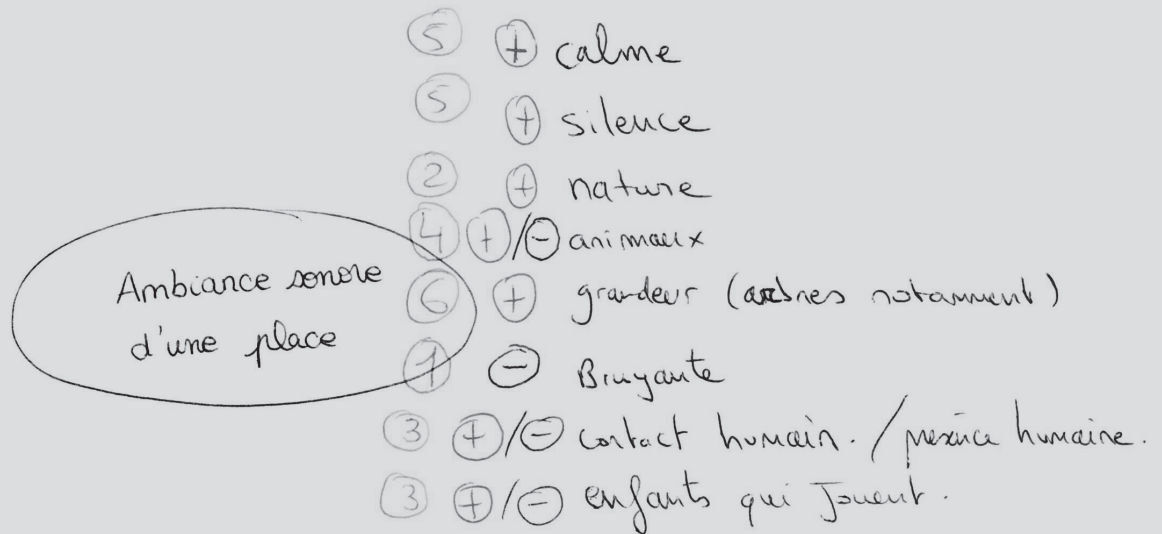 5 + calme
5 + silence
2 + nature
4 +/- animaux
Ambiance sonore
d'une place
6 + grandeur (arbres notamment)
1 - Bruyante
3 +/- contact humain. / présence humaine.
3 +/- enfants qui Jouent.